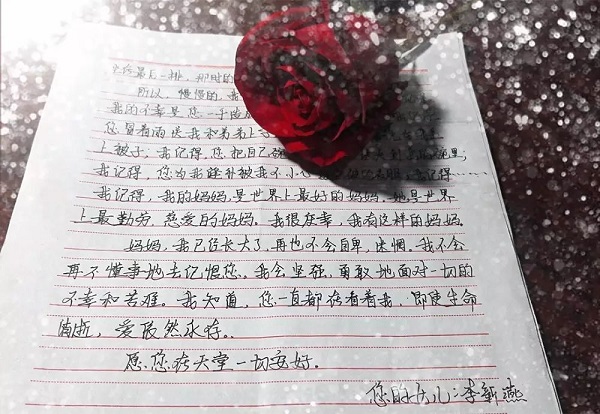 最后一排，那时的
所以，慢慢的，我
我的不幸是您一手造成
您冒着雨送我和弟弟上
上被子；我记得，您把自己
我记得，您为我缝补被我不小心 记得……
我记得，我的妈妈是世界上最好的妈妈，她是世界
上最勤劳，慈爱的妈妈。我很庆幸，我有这样的妈妈。
妈妈，我已经长大了，再也不会自卑，迷惘。我不会
再不懂事地去记恨您。我会坚强，勇敢地面对一切的
不幸和苦难。我知道，您一直都在看着我，即使生命
消逝，爱依然永存。
愿您在天堂一切安好。
您的女儿：李新燕